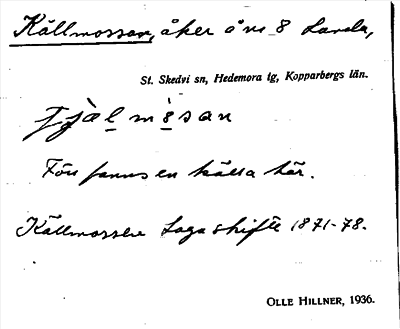 Källmossan, åker å nr 8 Landa,
St. Skedvi sn, Hedemora tg, Kopparbergs län.
Förr fanns en källa här.
Källmossen Laga skifte 1871-78.
OLLE HILLNER, 1936.